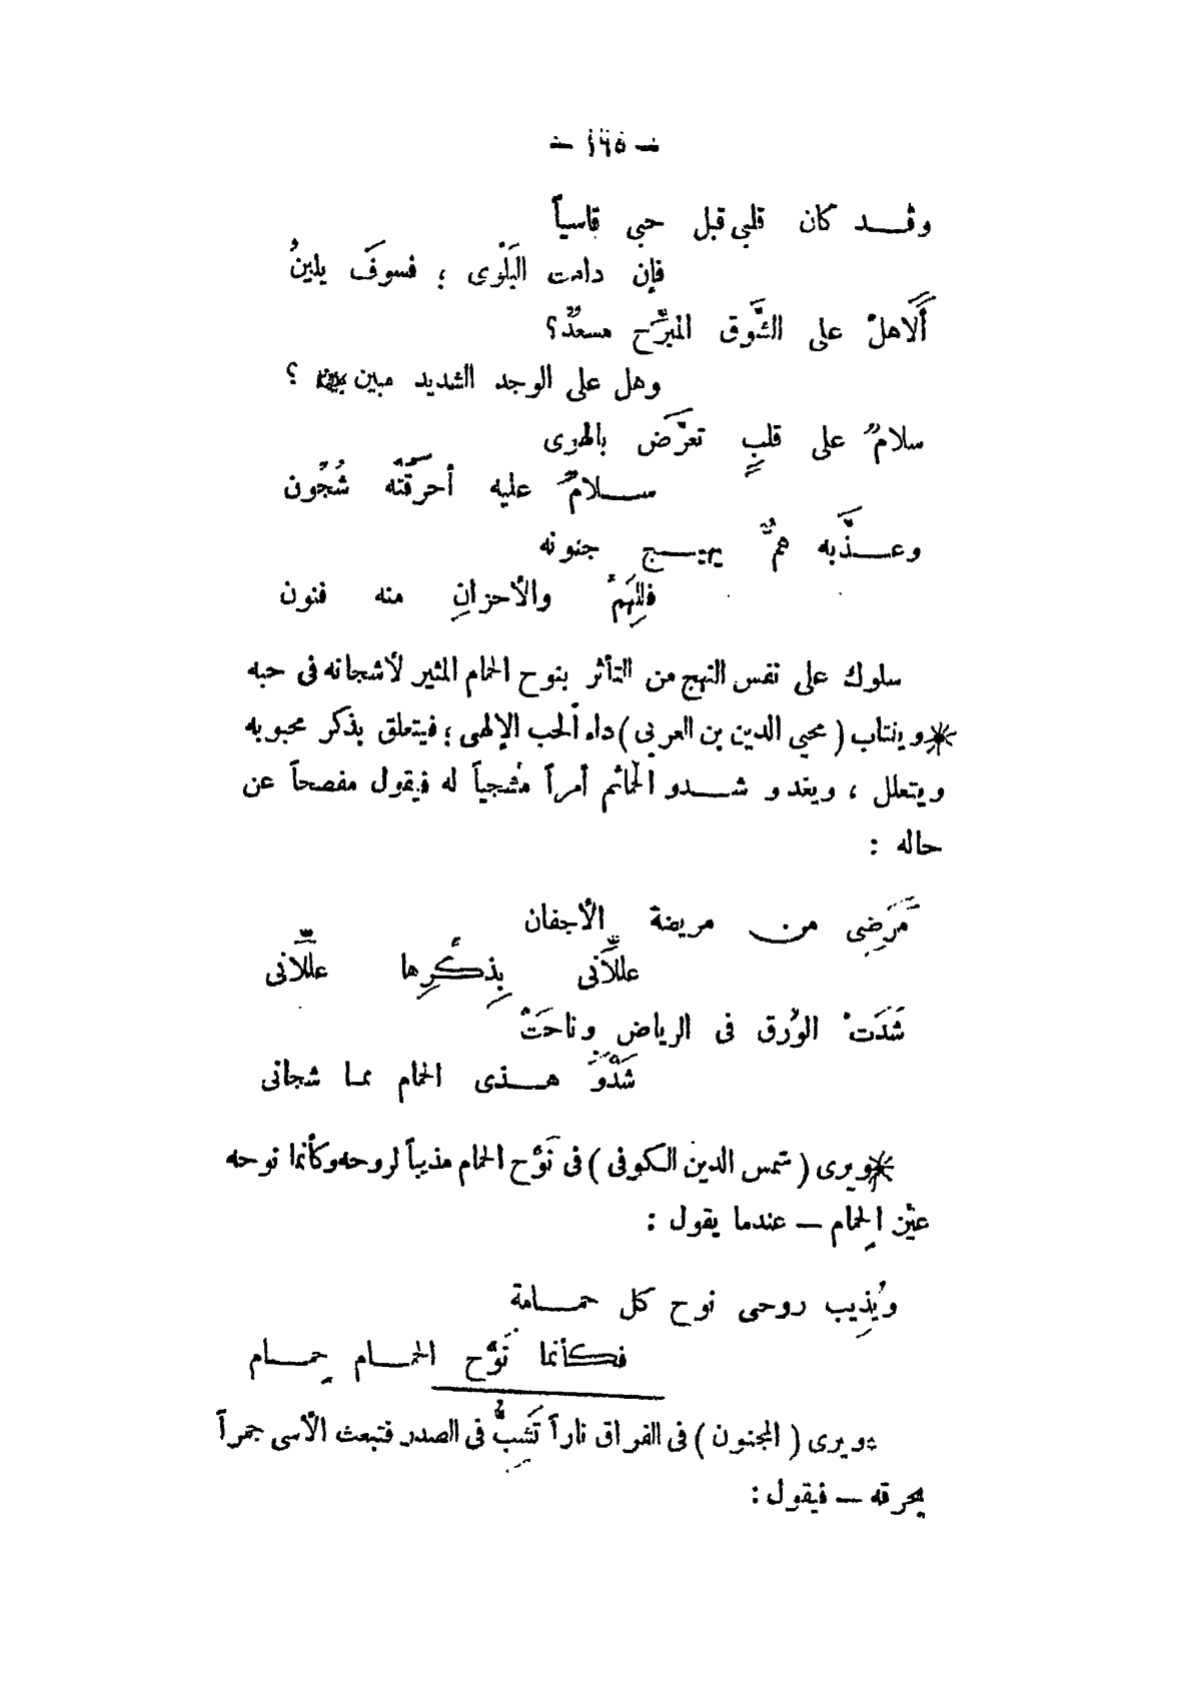 — ١٦٥ —
وقد كان قلبي قبل حبي قاسياً
فإن دامت البَلْوى ؛ فسوفَ يلينُ
أَلَاهلْ على الشَّوق المبَرِّح مسعدٌ؟
وهل على الوجد الشديد مبين ؟
سلامٌ على قلبٍ تعرَّض بالهوى
سلامٌ عليه أحرقَتْه شُجُون
وعذَّبه همٌّ يهيج جنونه
فللِهَمِّ والأحزانِ منه فنون
سلوك على نفس النهج من التأثر بنوح الحمام المثير لأشجانه فى حبه
* وينتاب ( محيي الدين بن العربى ) داء الحب الإلهى ؛ فيتعلق بذكر محبوبه
ويتعلل ، ويغدو شدو الحَمائم أمراً مُشجياً له فيقول مفصحاً عن
حاله :
مَرَضِى من مريضة الأجفان
عللَّانى بِذكْرِها عللَّانى
شَدَتْ الوُرق فى الرياض وناحَتْ
شَدْوَ هذى الحمام مما شجانى
* ويرى ( شمس الدين الكوفى ) فى نَوْح الحمام مذيباً لروحه وكأنما نوحه
عيْن الِحمام — عندما يقول :
ويُذِيب روحى نوح كل حمامة
فكأنما نَوْح الحمام حِمام
* ويرى ( المجنون ) فى الفراق ناراً تَشِبُّ فى الصدر فتبعث الأسى جمراً
يحرقه — فيقول :